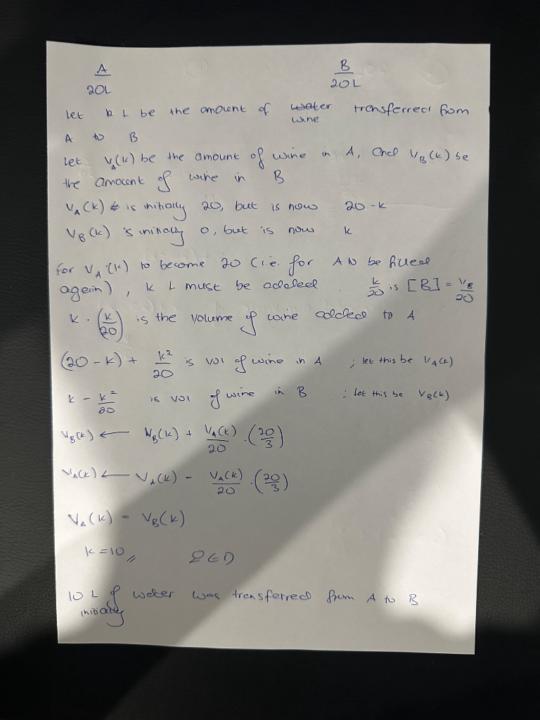 A B
20L 20L
let k L be the amount of wine transferred from
A to B
Let V_A(k) be the amount of wine in A, and V_B(k) be
the amount of wine in B
V_A(k) is initially 20, but is now 20-k
V_B(k) is initially 0, but is now k
For V_A(k) to become 20 (i.e. for A to be filled
again), k L must be added k/20 is [B] = V_B/20
k · (k/20) is the volume of wine added to A
(20-k) + k²/20 is vol of wine in A ; let this be V_A(k)
k - k²/20 is vol of wine in B ; let this be V_B(k)
V_B(k) ← V_B(k) + V_A(k)/20 · (20/3)
V_A(k) ← V_A(k) - V_A(k)/20 · (20/3)
V_A(k) = V_B(k)
k = 10 // QED
10 L of water was transferred from A to B
initially